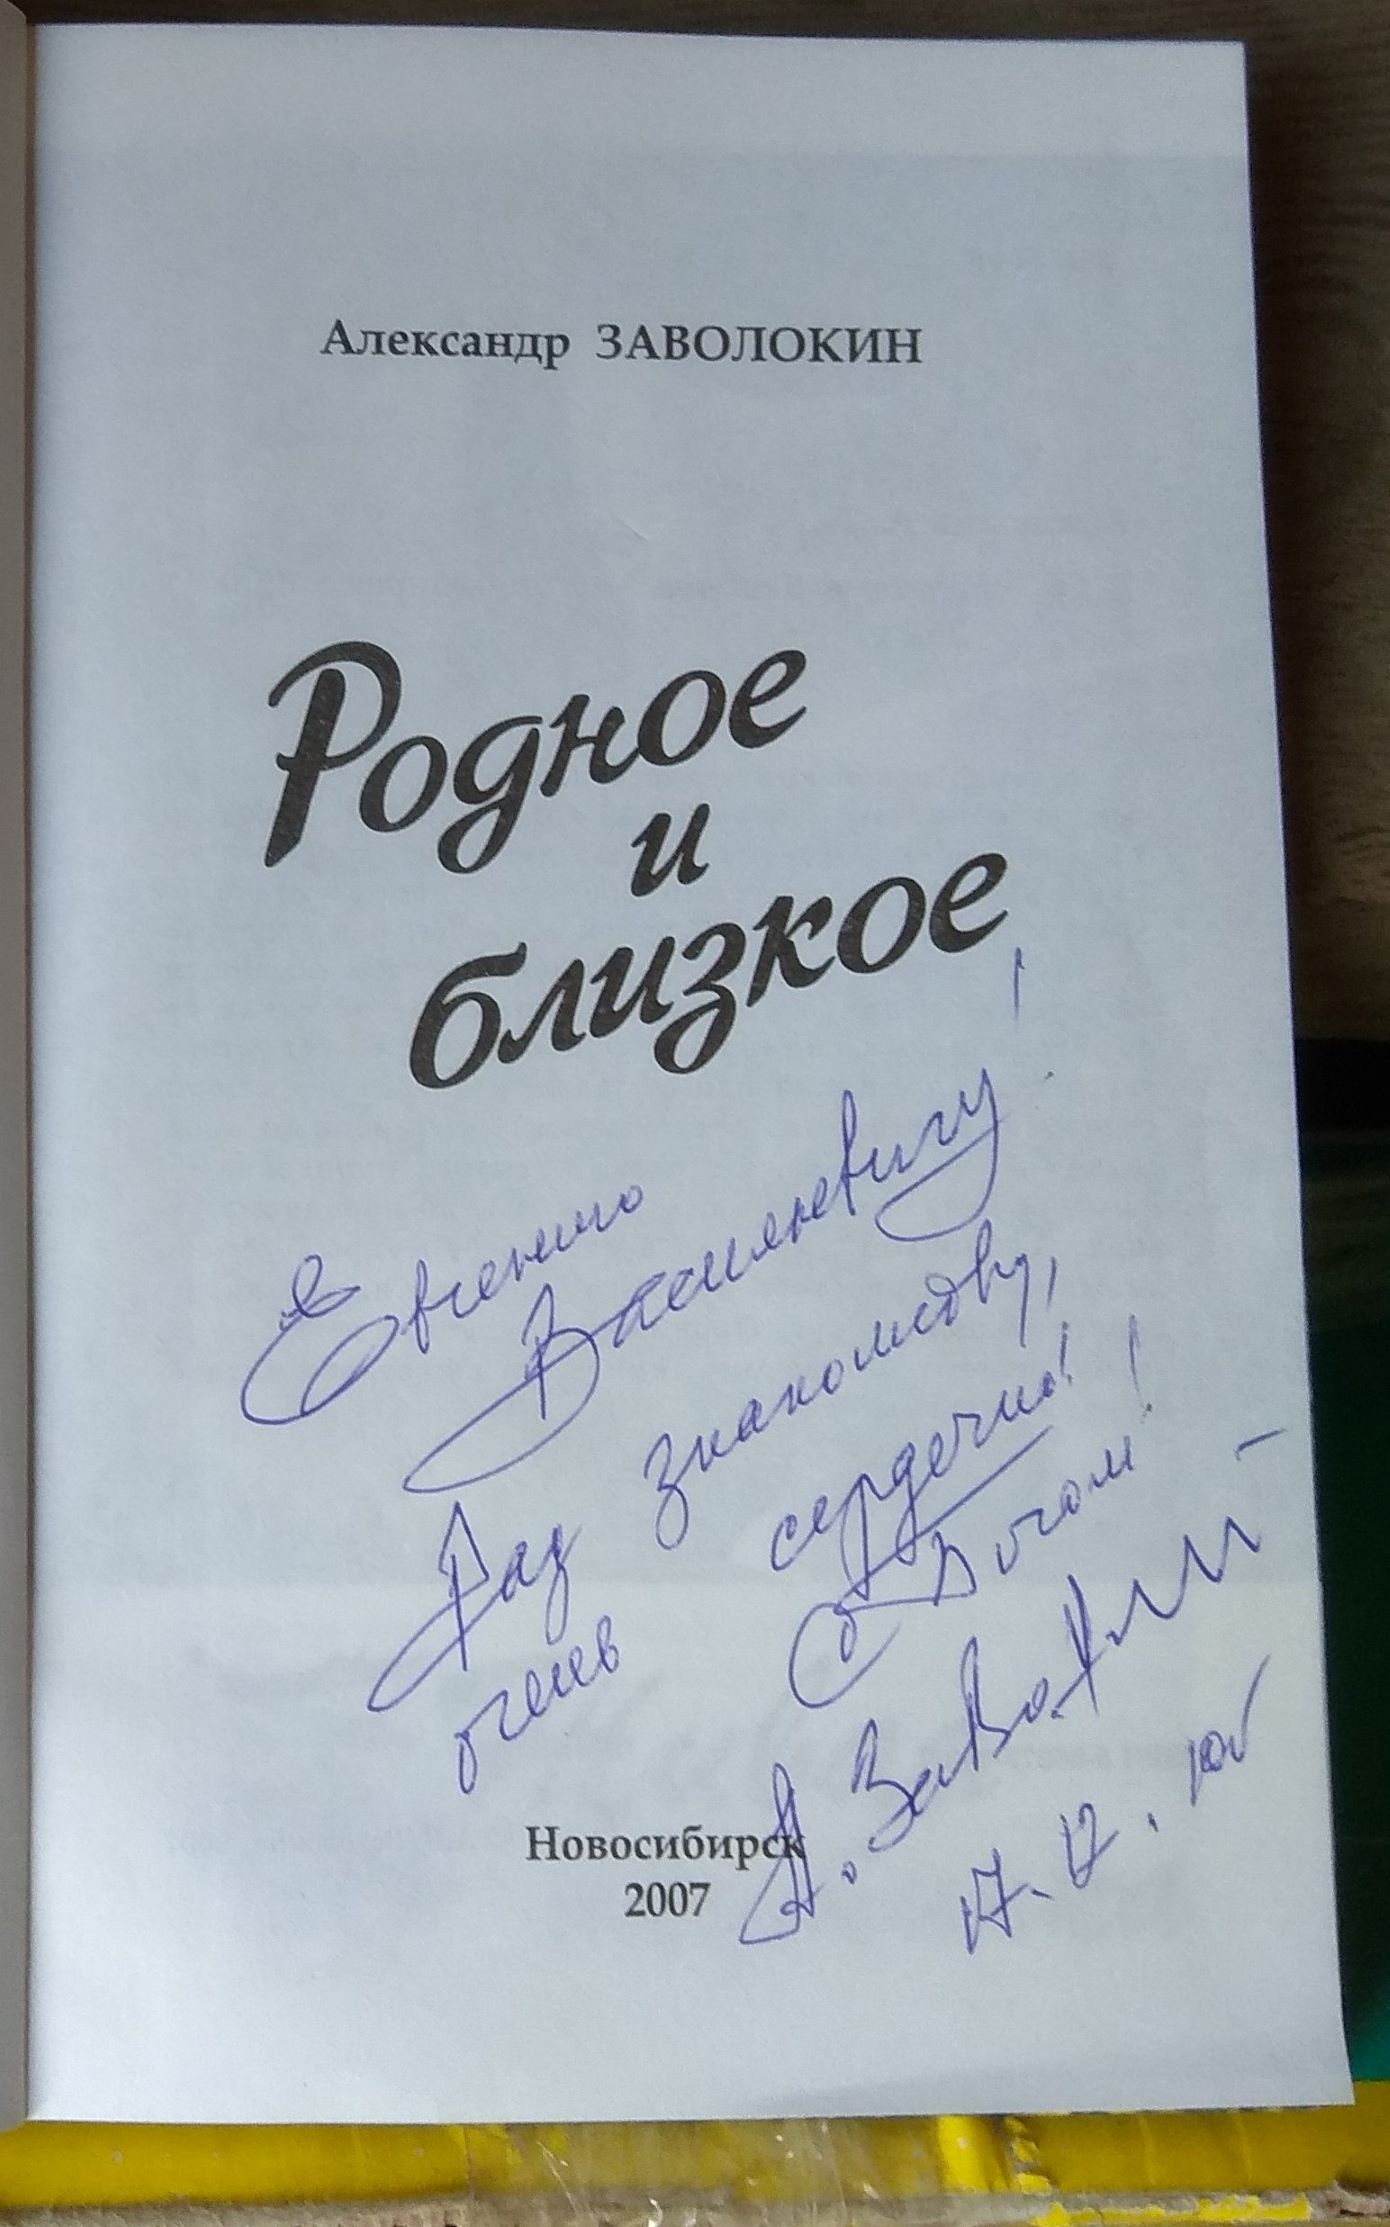 Александр ЗАВОЛОКИН
Родное
и
близкое
Евгению
Васильевичу!
Рад знакомству,
очень сердечно!
С Богом!
А. Заволокин
Новосибирск
2007
17.12.